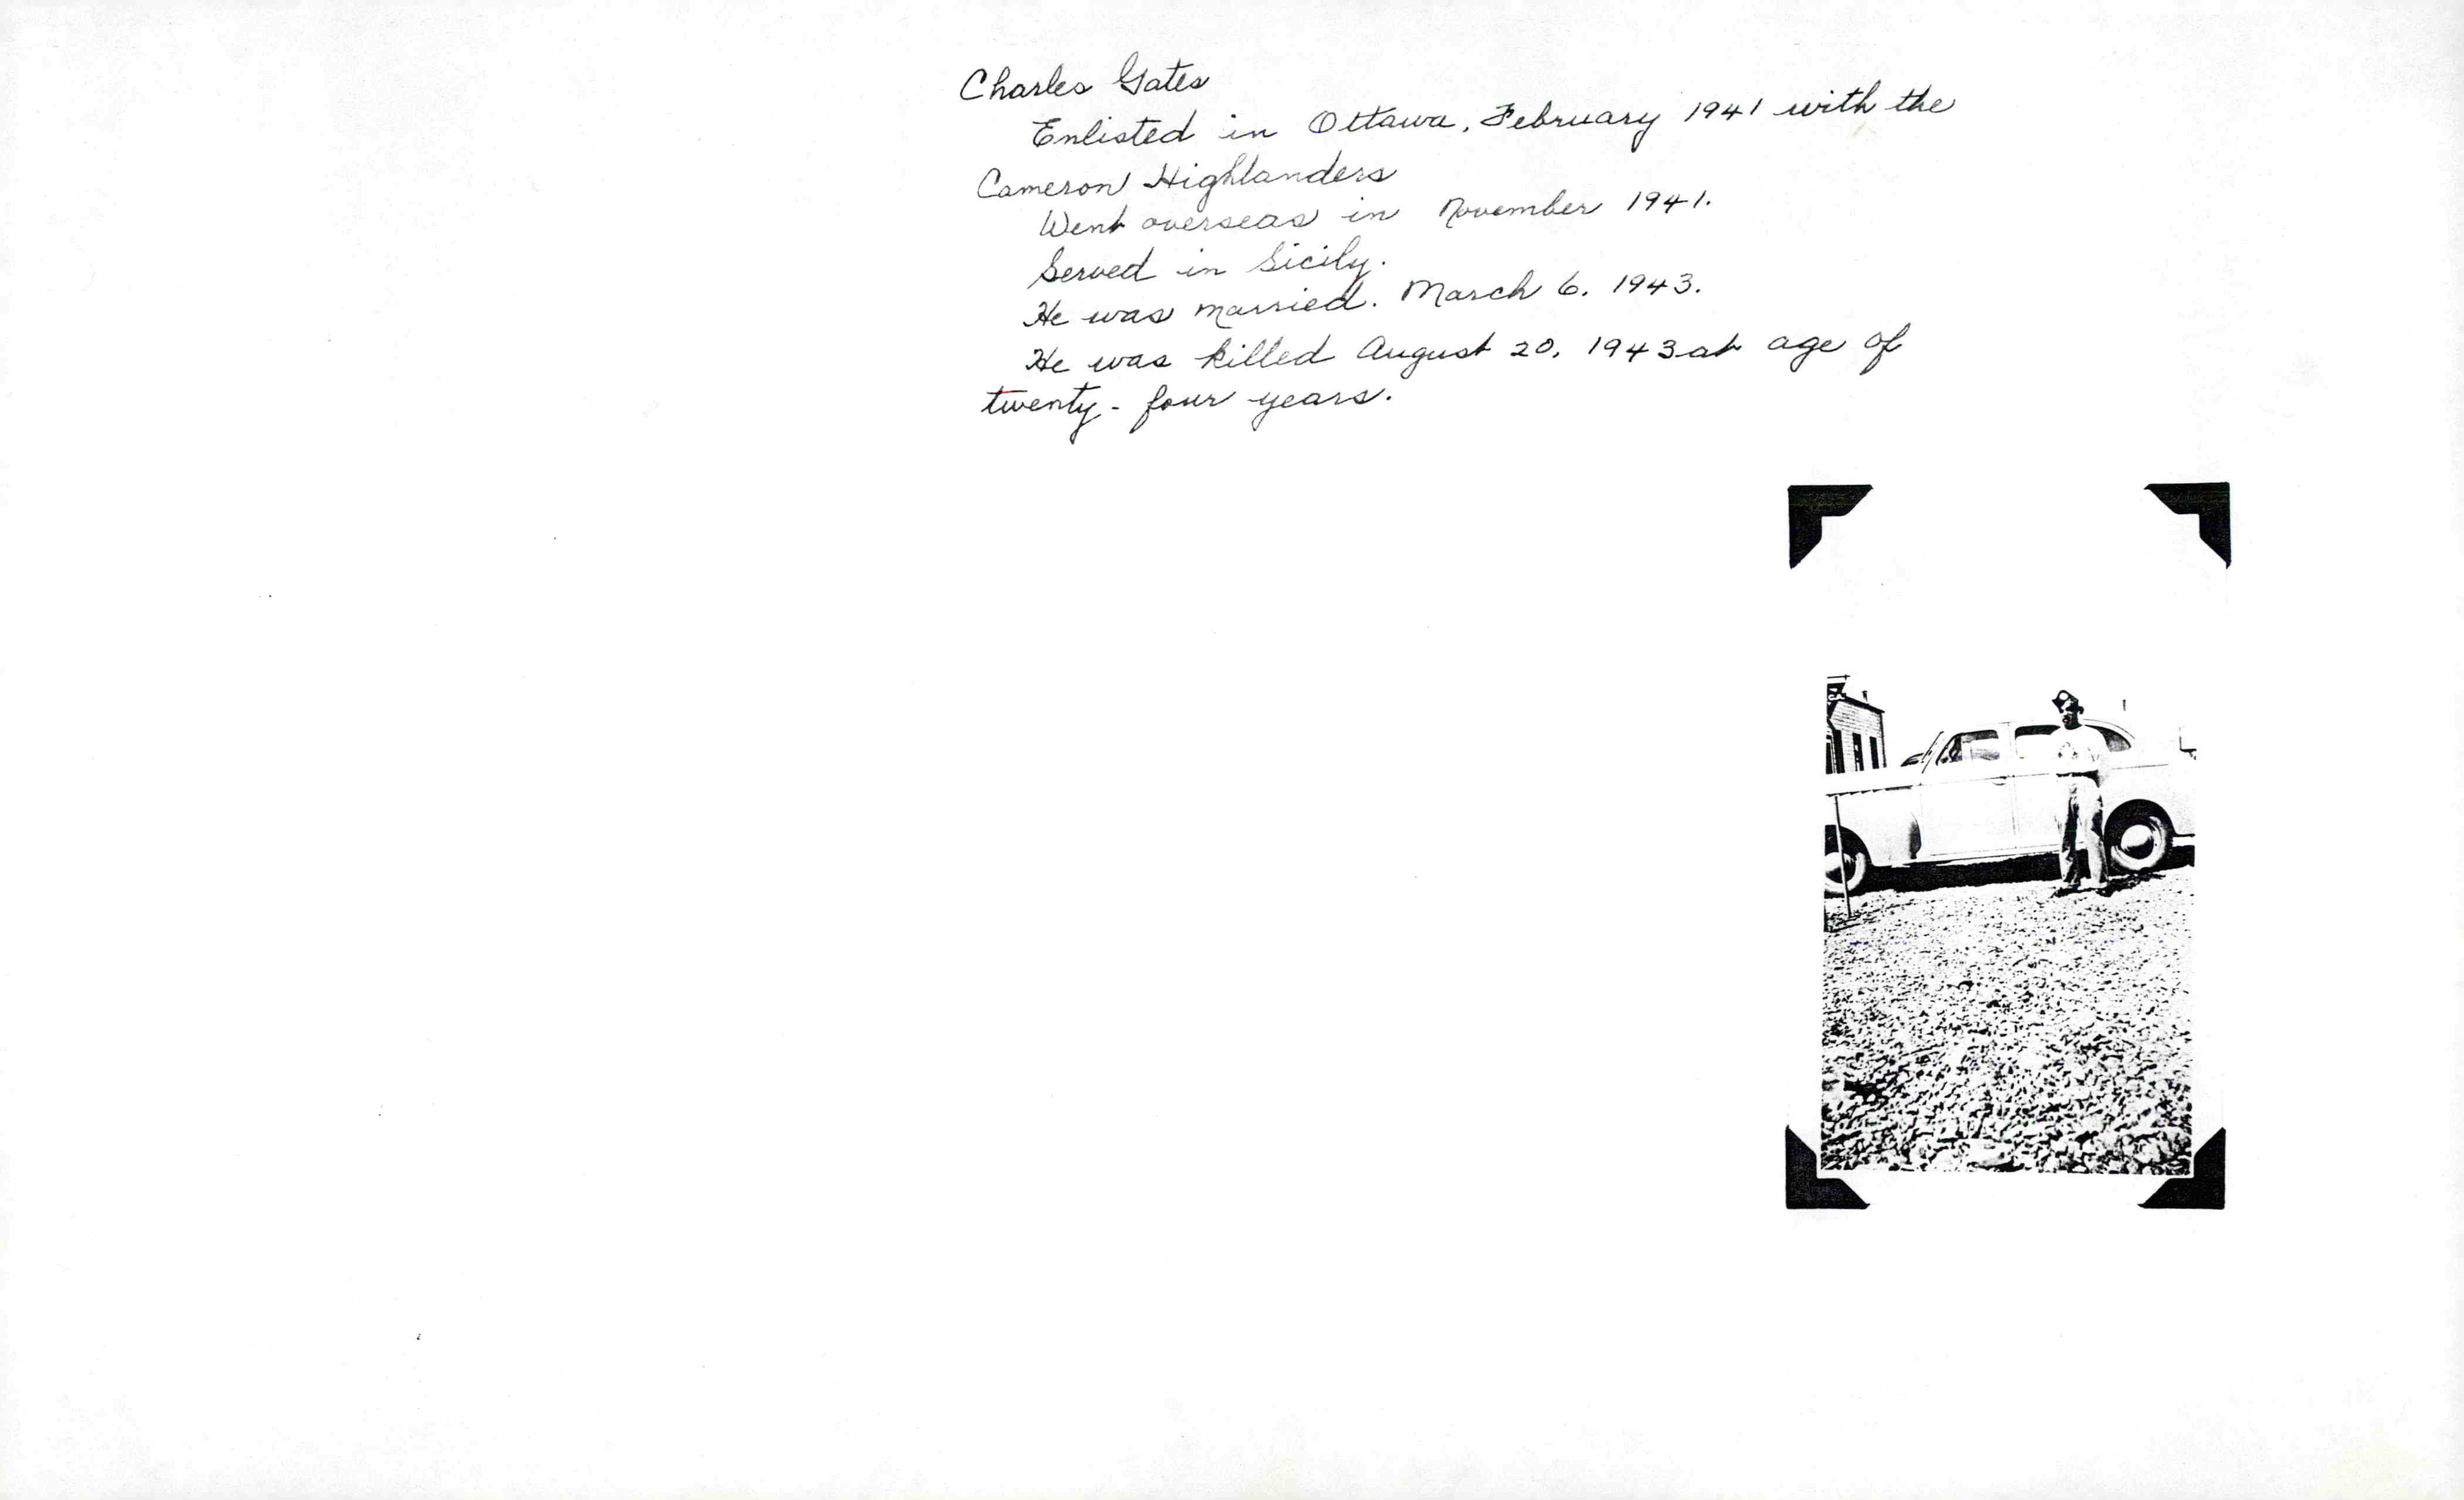 Charles Gates
Enlisted in Ottawa, February 1941 with the
Cameron Highlanders
Went overseas in November 1941.
Served in Sicily.
He was married. March 6. 1943.
He was killed August 20, 1943 at age of
twenty-four years.